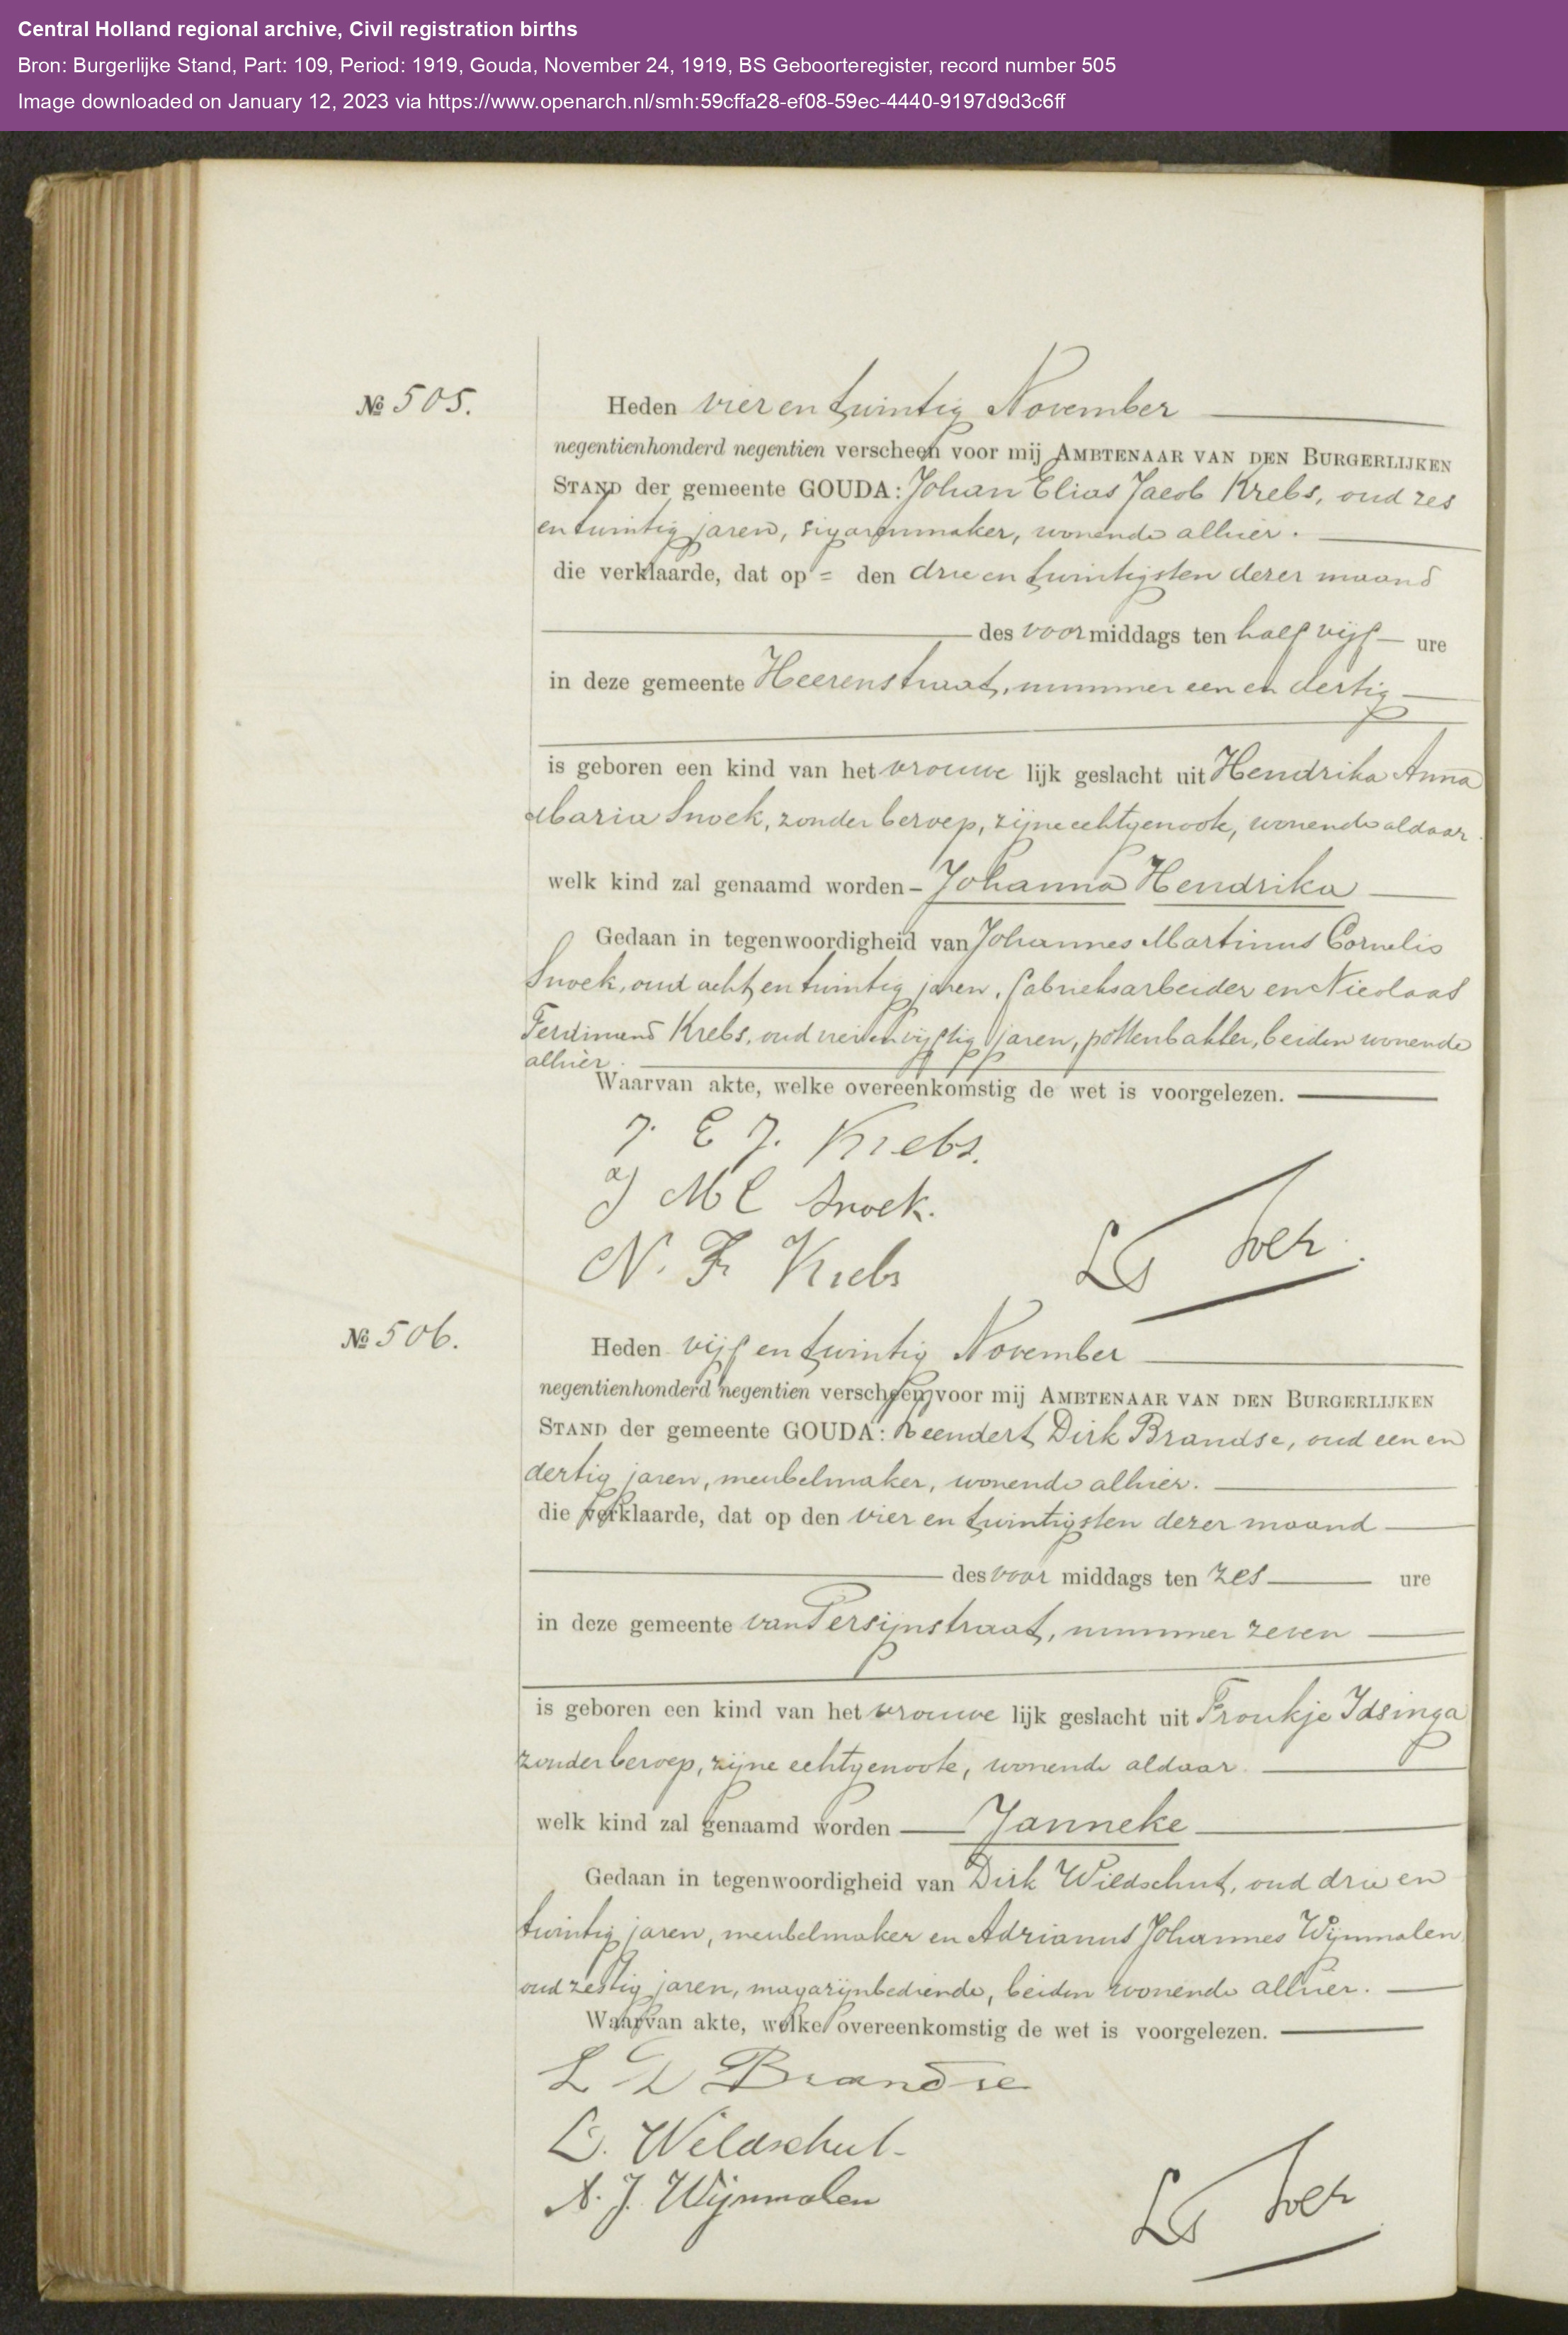 Central Holland regional archive, Civil registration births
Bron: Burgerlijke Stand, Part: 109, Period: 1919, Gouda, November 24, 1919, BS Geboorteregister, record number 505
Image downloaded on January 12, 2023 via https://www.openarch.nl/smh:59cffa28-ef08-59ec-4440-9197d9d3c6ff
№ 505.
Heden vier en twintig November
negentienhonderd negentien verscheen voor mij AMBTENAAR VAN DEN BURGERLIJKEN
STAND der gemeente GOUDA: Johan Elias Jacob Krebs, oud zes
en twintig jaren, sigarenmaker, wonende alhier.
die verklaarde, dat op = den drie en twintigsten dezer maand
des voormiddags ten half vijf ure
in deze gemeente Heerenstraat, nummer een en dertig
is geboren een kind van het vrouwe lijk geslacht uit Hendrika Anna
Maria Snoek, zonder beroep, zijne echtgenoote, wonende aldaar.
welk kind zal genaamd worden - Johanna Hendrika
Gedaan in tegenwoordigheid van Johannes Martinus Cornelis
Snoek, oud acht en twintig jaren, fabrieksarbeider en Nicolaas
Ferdinand Krebs, oud vier en vijftig jaren, pottenbakker, beiden wonende
alhier.
Waarvan akte, welke overeenkomstig de wet is voorgelezen.
J. E J. Krebs.
J M C Snoek.
N. F. Krebs
№ 506.
Heden vijf en twintig November
negentienhonderd negentien verscheen voor mij AMBTENAAR VAN DEN BURGERLIJKEN
STAND der gemeente GOUDA: Leendert Dirk Brandse, oud een en
dertig jaren, meubelmaker, wonende alhier.
die verklaarde, dat op den vier en twintigsten dezer maand
des voor middags ten zes ure
in deze gemeente van Persijnstraat, nummer zeven
is geboren een kind van het vrouwe lijk geslacht uit Froukje Idsinga
zonder beroep, zijne echtgenoote, wonende aldaar.
welk kind zal genaamd worden Janneke
Gedaan in tegenwoordigheid van Dirk Wildschut, oud drie en
twintig jaren, meubelmaker en Adrianus Johannes Wijnmalen
oud zestig jaren, magazijnbediende, beiden wonende alhier.
Waarvan akte, welke overeenkomstig de wet is voorgelezen.
L D Brandse
D. Wildschut
A. J. Wijnmalen